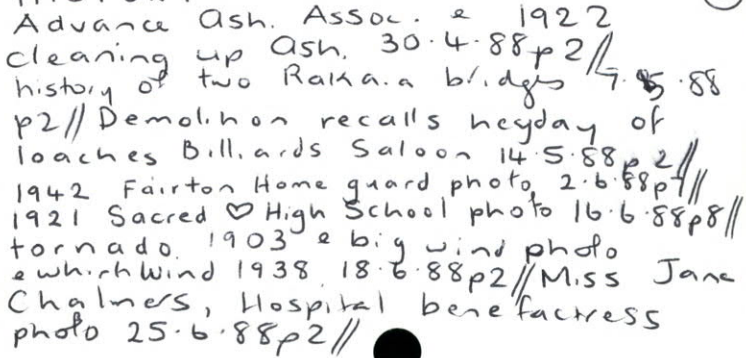 Advance Ash. Assoc. e 1922
cleaning up Ash. 30.4.88p2//
history of two Rakaia bridges 7.5.88
p2//Demolition recalls heyday of
loaches Billiards Saloon 14.5.88p2//
1942 Fairton Home guard photo 2.6.88p7//
1921 Sacred ♡ High School photo 16.6.88p8//
tornado 1903 e big wind photo
e whirlwind 1938 18.6.88p2//Miss Jane
Chalmers, Hospital benefactress
photo 25.6.88p2//